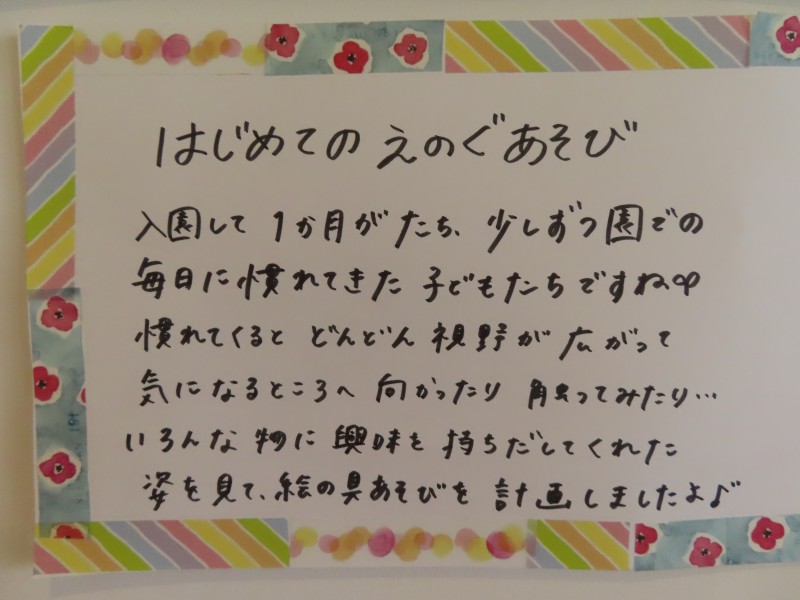 はじめての えのぐあそび
入園して 1か月がたち、少しずつ園での
毎日に慣れてきた 子どもたちですね∞
慣れてくると どんどん 視野が 広がって
気になるところへ 向かったり 触ってみたり…
いろんな 物に 興味を 持ちだしてくれた
姿を 見て、絵の具あそびを 計画しましたよ♪